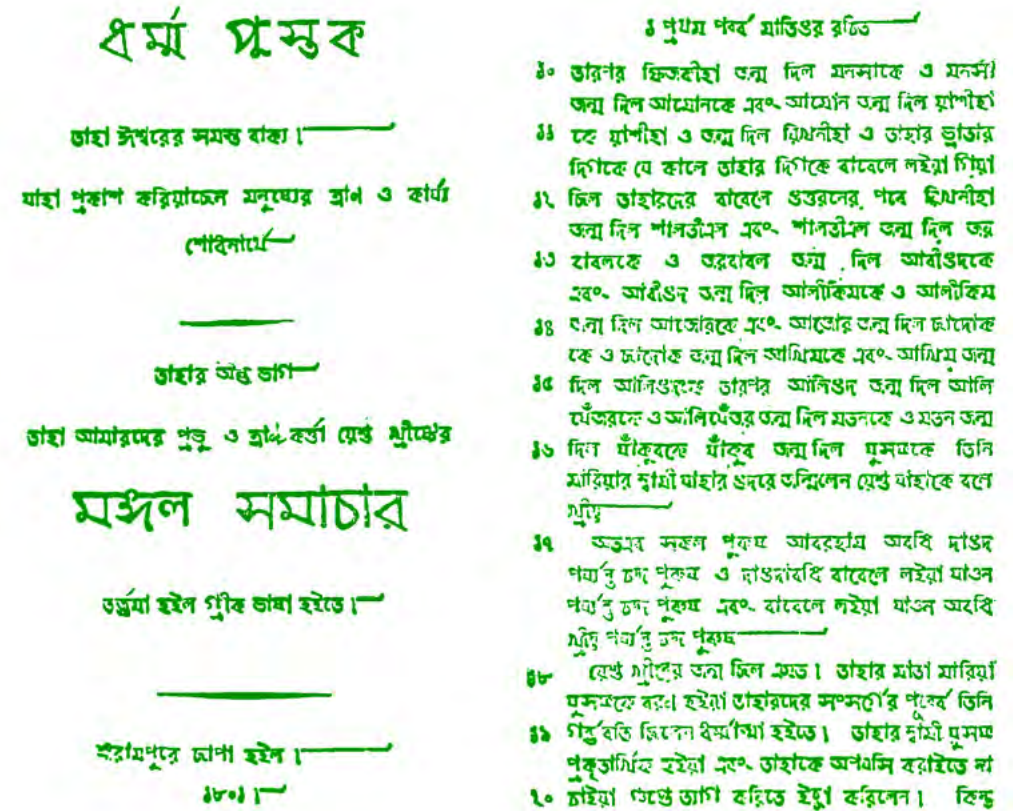 ধর্ম্ম পুস্তক
তাহা ঈশ্বরের সমস্ত বাক্য।
যাহা প্রকাশ করিয়াছেন মনুষ্যের ত্রাণ ও কার্য্য
শোধনার্থে
তাহার অন্ত ভাগ
তাহা আমারদের প্রভু ও ত্রাণ কর্ত্তা য়েশু খ্রীষ্টের
মঙ্গল সমাচার
তর্জমা হইল গ্রীক ভাষা হইতে।
শ্রীরামপুরে ছাপা হইল।
১৮০১।
১ প্রথম পর্ব্ব মাতিওর রচিত
১০ তারপর হিজকীহা জন্ম দিল মনসাকে ও মনসা
জন্ম দিল আমোনকে এবং আমোন জন্ম দিল য়াশীহা
১১ কে য়াশীহা ও জন্ম দিল য়িখনীহা ও তাহার ভ্রাতার
দিগকে যে কালে তাহার দিগকে বাবেলে লইয়া গিয়া
১২ ছিল তাহারদের বাবেলে উত্তরনের পরে য়িখনীহা
জন্ম দিল শালতীএল এবং শালতীএল জন্ম দিল জর
১৩ বাবলকে ও জরবাবল জন্ম দিল আবীওদকে
এবং আবীওদ জন্ম দিল আলীকিমকে ও আলীকিম
১৪ জন্ম দিল আজোরকে এবং আজোর জন্ম দিল ছাদোক
কে ও ছাদোক জন্ম দিল আখিমকে এবং আখিম জন্ম
১৫ দিল আলিওদকে তারপর আলিওদ জন্ম দিল আলি
য়েঁজরকে ও আলিয়েঁজর জন্ম দিল মতনকে ও মতন জন্ম
১৬ দিল য়াঁকুবকে য়াঁকুব জন্ম দিল য়ুসফকে তিনি
মারিয়ার স্বামী যাহার উদরে জন্মিলেন য়েশু যাহাকে বলে
খ্রীষ্ট
১৭ অতএব সকল পুরুষ আবরহাম অবধি দাওদ
পর্য্যন্ত চদ্দ পুরুষ ও দাওদাবধি বাবেলে লইয়া যাওন
পর্য্যন্ত চদ্দ পুরুষ এবং বাবেলে লইয়া যাওন অবধি
খ্রীষ্ট পর্য্যন্ত চদ্দ পুরুষ
১৮ য়েশু খ্রীষ্টের জন্ম ছিল এমত। তাহার মাতা মারিয়া
য়ুসফকে হইয়া তাহারদের সংসর্গের পূর্ব্বে তিনি
১৯ গর্ব্ভবতি ছিলেন ধর্ম্মাত্মা হইতে। তাহার স্বামী য়ুসফ
প্রকৃতার্থিক হইয়া এবং তাহাকে অপযসি করাইতে না
২০ চাইয়া গুপ্তে ত্যাগ করিতে ইচ্ছা করিলেন। কিন্তু